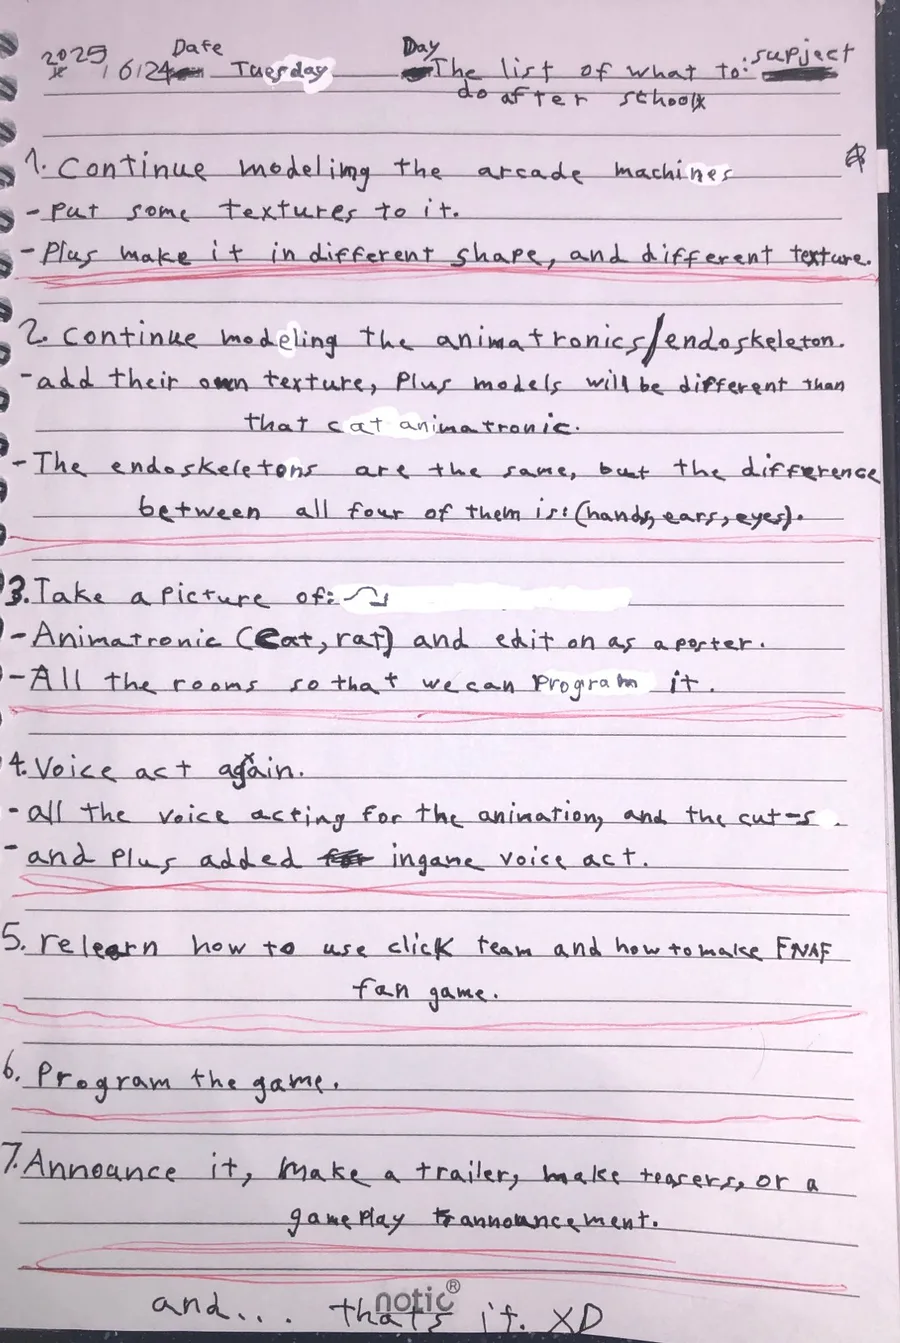 2025 Date Day
/6/24 Tuesday The list of what to: supject
do after school
1. Continue modeling the arcade machines
- put some textures to it.
- Plus make it in different shape, and different texture.
2. Continue modeling the animatronics/endoskeleton.
- add their own texture, Plus models will be different than
that cat animatronic.
- The endoskeletons are the same, but the difference
between all four of them is: (hands, ears, eyes).
3. Take a picture of:
- Animatronic (Cat, rat) and edit on as a poster.
- All the rooms so that we can Program it.
4. Voice act again.
- all the voice acting for the animation, and the cut-s
- and Plus added ingame voice act.
5. relearn how to use click team and how to make FNAF
fan game.
6. Program the game.
7. Announce it, make a trailer, make teasers, or a
gameplay announcement.
notic®
and... that's it. XD